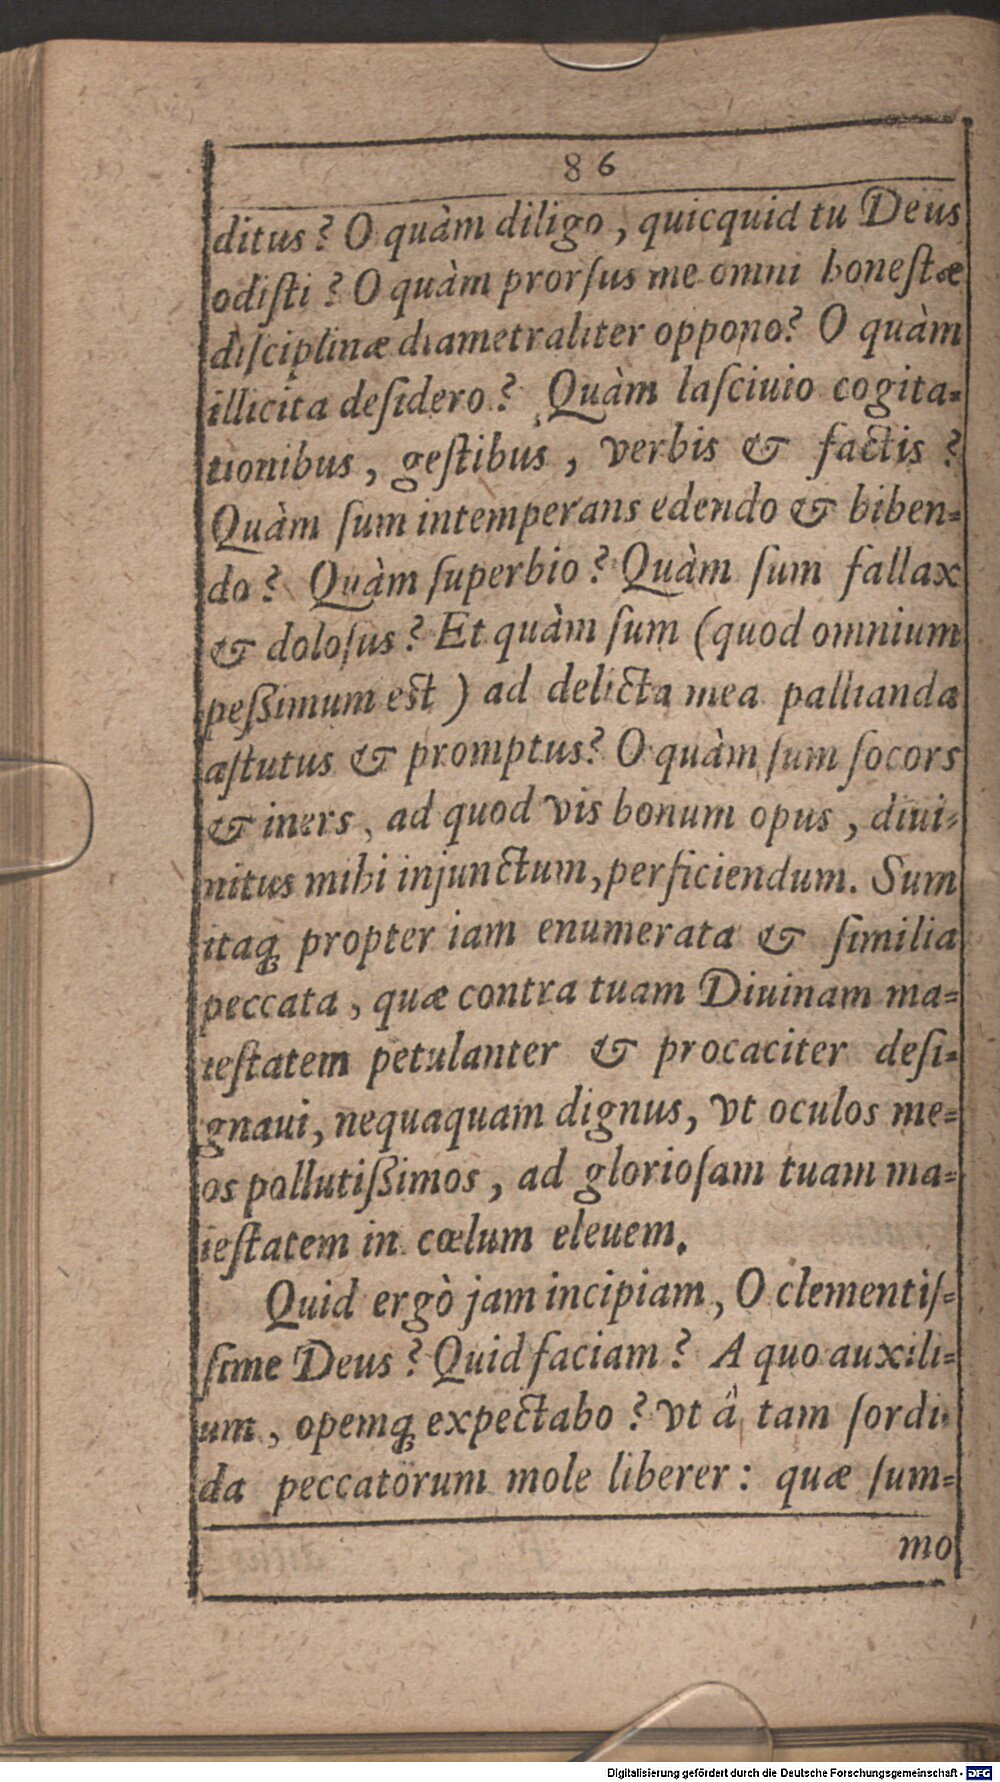 86
ditus? O quàm diligo, quicquid tu Deus
odiſti? O quàm prorſus me omni honeſtæ
diſciplinæ diametraliter oppono? O quàm
illicita deſidero? Quàm laſciuio cogita=
tionibus, geſtibus, verbis & factis?
Quàm ſum intemperans edendo & biben=
do? Quàm ſuperbio? Quàm ſum fallax
& doloſus? Et quàm ſum (quod omnium
peſsimum est) ad delicta mea pallianda
aſtutus & promptus? O quàm ſum ſocors
& iners, ad quod vis bonum opus, diui=
nitus mihi injunctum, perficiendum. Sum
itaq; propter iam enumerata & ſimilia
peccata, quæ contra tuam Diuinam ma=
ieſtatem petulanter & procaciter deſi=
gnaui, nequaquam dignus, vt oculos me=
os pollutiſsimos, ad glorioſam tuam ma=
ieſtatem in cœlum eleuem.
Quid ergò jam incipiam, O clementiſ=
ſime Deus? Quid faciam? A quo auxili=
um, opemq; expectabo? vt â tam ſordi=
da peccatorum mole liberer: quæ ſum=
mo
Digitalisierung gefördert durch die Deutsche Forschungsgemeinschaft - DFG